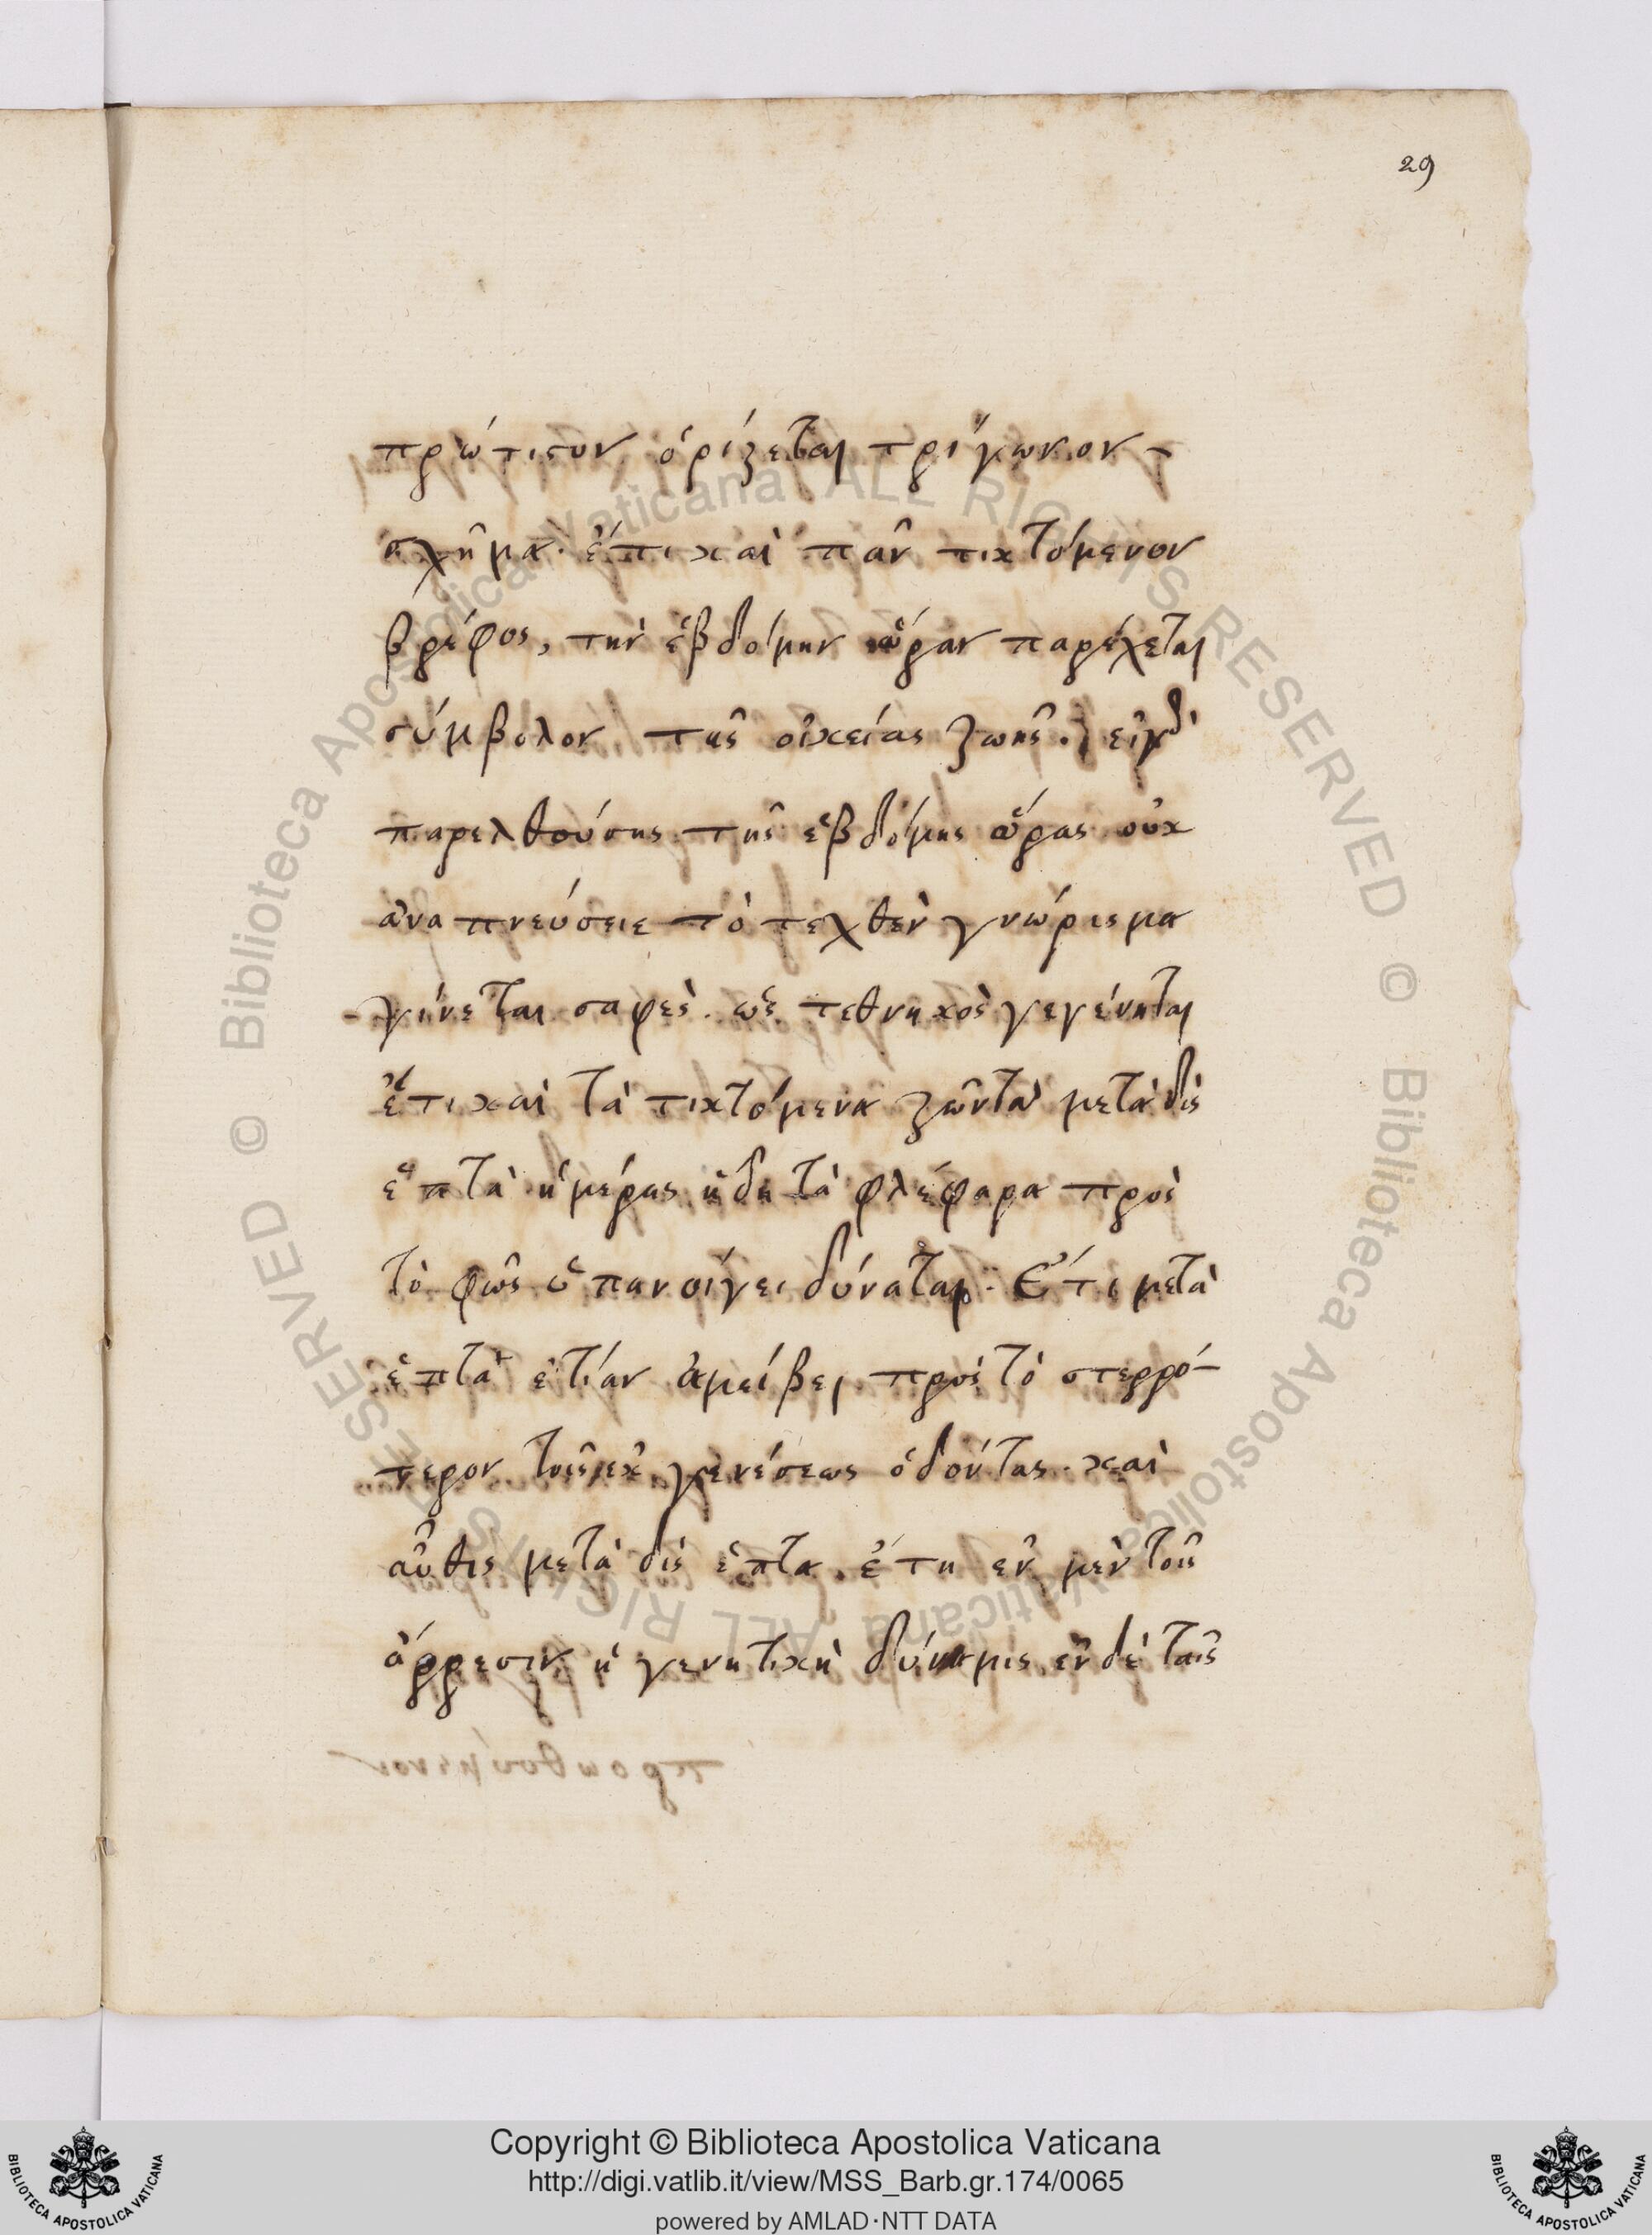 29
πρώτιστον ὁρίζεται τρίγωνον
σχῆμα. ἔτι καὶ πᾶν τικτόμενον
βρέφος, τὴν ἑβδόμην ὥραν παρέχεται
σύμβολον τῆς οἰκείας ζωῆς. εἰ γὰρ
παρελθούσης τῆς ἑβδόμης ὥρας οὐκ
ἀναπνεύσειε τὸ τεχθὲν γνώρισμα
γίνεται σαφὲς. ὡς τεθνηκὸς γεγένηται
ἔτι καὶ τὰ τικτόμενα ζῶντα μετὰ δὶς
ἑπτὰ ἡμέρας ἤδη τὰ φλέφαρα πρὸς
τὸ φῶς ὑπανοίγει δύναται. Ἔτι μετὰ
ἑπτὰ ἐτίαν ἀμείβει πρὸς τὸ στερρό-
τερον τοῖς ἐκ γενέσεως ὀδόντας. καὶ
αὖθις μετὰ δὶς ἑπτα ἔτη ἐν μὲν τοῖς
ἄρρεσιν ἡ γενητικὴ δύναμις ἐν δὲ ταῖς
© Biblioteca Apostolica Vaticana ALL RIGHTS RESERVED © Biblioteca Apostolica Vaticana ALL RIGHTS RESERVED
Copyright © Biblioteca Apostolica Vaticana
http://digi.vatlib.it/view/MSS_Barb.gr.174/0065
powered by AMLAD·NTT DATA
BIBLIOTECA APOSTOLICA VATICANA
BIBLIOTECA APOSTOLICA VATICANA